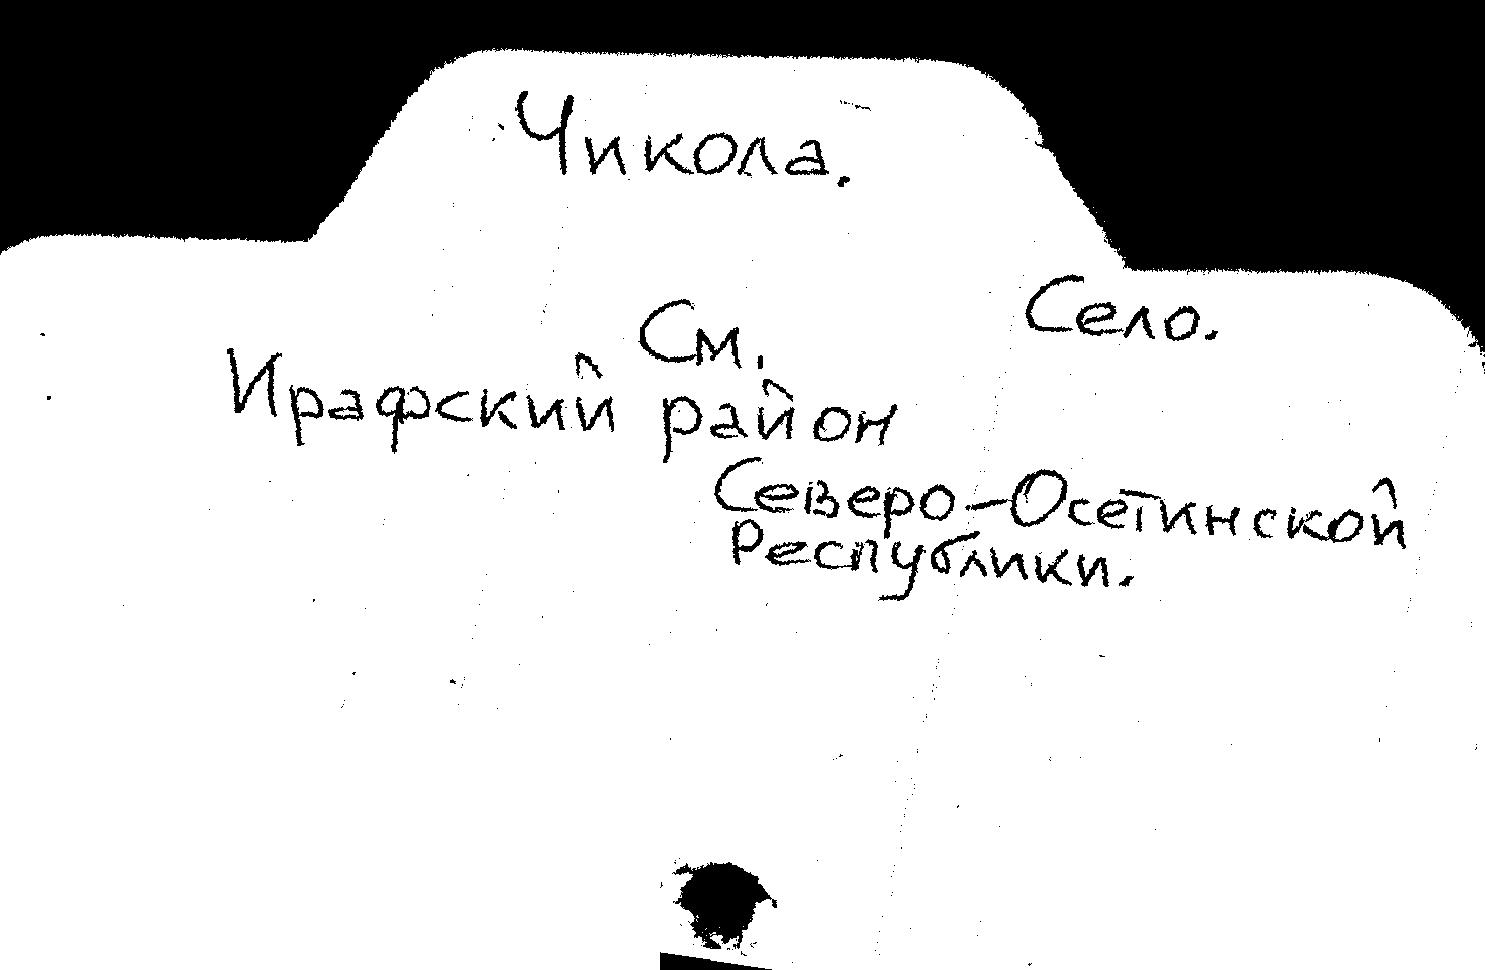 Чикола.
Село.
См.
Ирафский район
Северо-Осетинской
Республики.